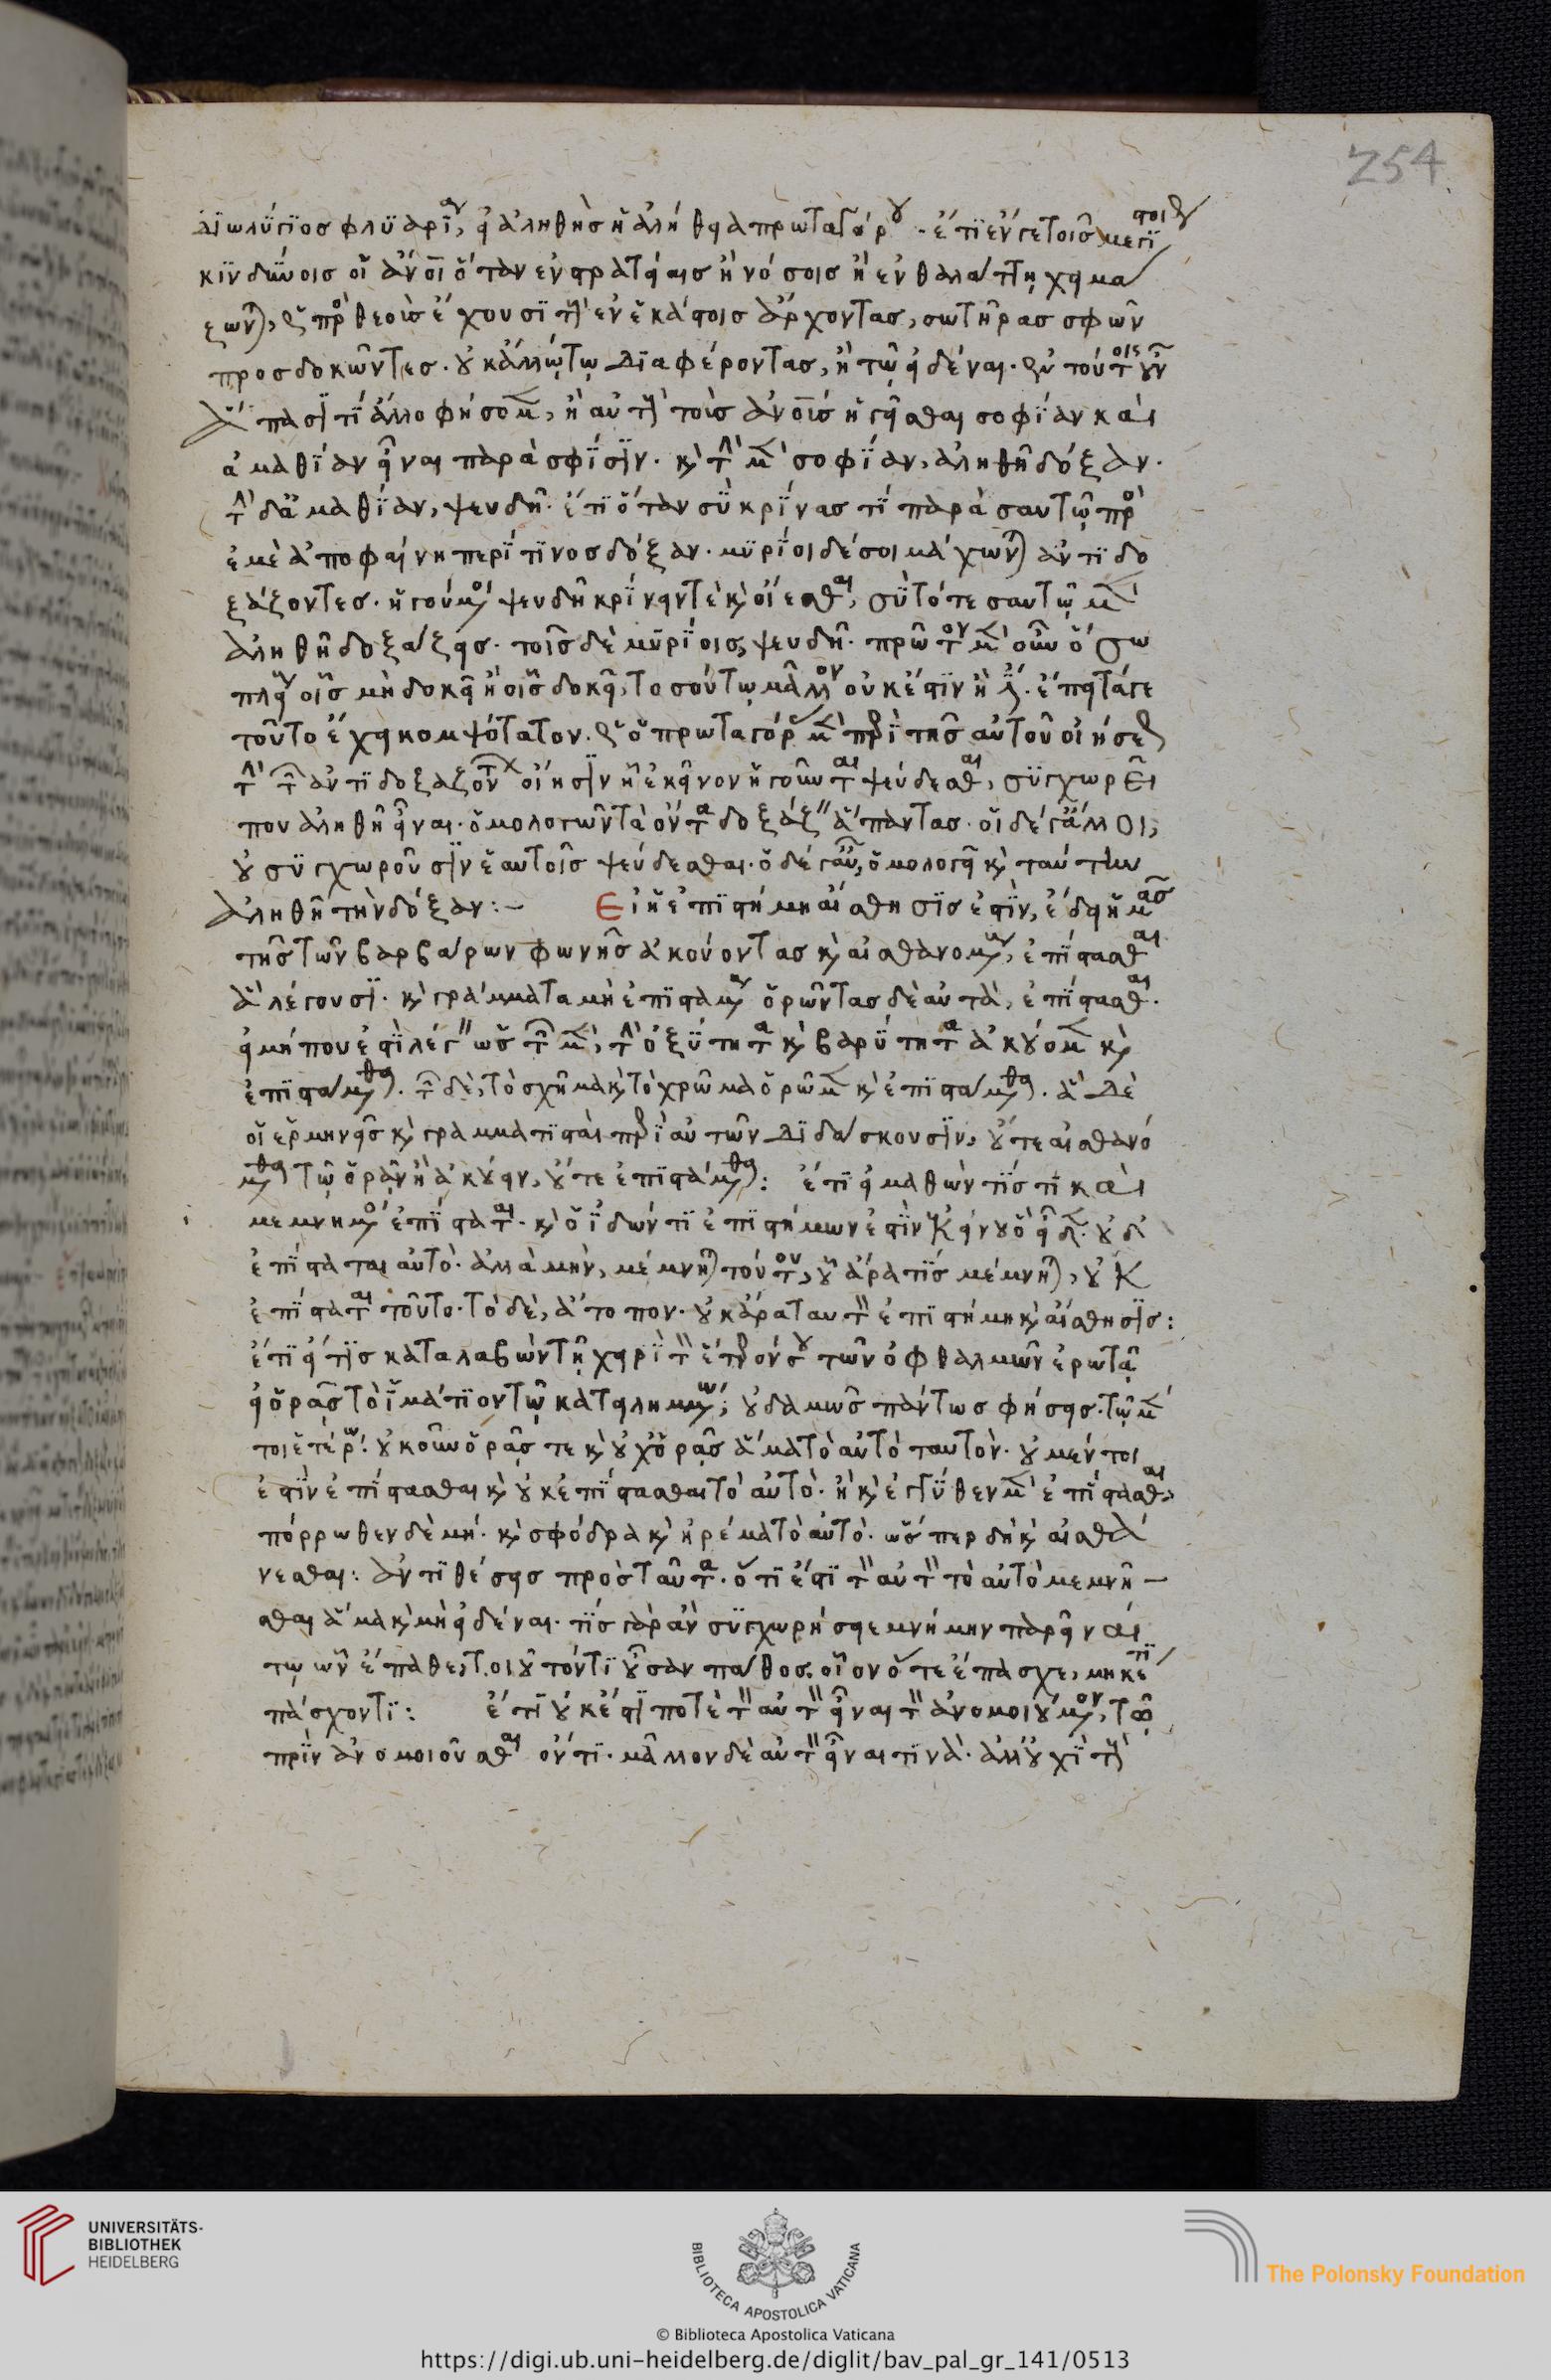 διωλύγιος φλυαρία, εἰ ἀληθὴς ἡ ἀλήθεια πρωταγόρου · ἔτι ἐν γε τοῖς μεγίστοις
κινδύνοις οἱ ἄνοι ὅταν ἐν στρατείαις ἢ νόσοις ἢ ἐν θαλάττῃ χειμά
ζωνται, ὡς πρὸς θεοὺς ἔχουσι τοὺς ἐν ἑκάστοις ἄρχοντας, σωτῆρας σφῶν
προσδοκῶντες. οὐκ ἄλλῳ τῳ διαφέροντας, ἢ τῷ εἰδέναι. ἐν τούτοις οὖν
ἅπασι τί ἄλλο φήσομεν, ἢ αὐτοὺς τοὺς ἀνους ἡγεῖσθαι σοφίαν καὶ
ἀμαθίαν εἶναι παρὰ σφίσιν. καὶ τὴν μὲν σοφίαν, ἀληθῆ δόξαν.
τὴν δ' ἀμαθίαν, ψευδῆ. ἔτι ὅταν σὺ κρίνας τι παρὰ σαυτῷ πρὸς
ἐμὲ ἀποφαίνῃ περί τινος δόξαν. μυρίοι δέ σοι μάχωνται ἀντιδο
ξάζοντες. ἡγούμενοι ψευδῆ κρίνειν τε καὶ οἴεσθαι, σὺ τότε σαυτῷ μὲν
ἀληθῆ δοξάζεις. τοῖς δὲ μυρίοις, ψευδῆ. πρῶτον μὲν οὖν ὅσω
πλείους οἷς μὴ δοκεῖ ἢ οἷς δοκεῖ, τοσούτῳ μᾶλλον οὐκ ἔστιν ἢ ἔστιν. ἔπειτά γε
τοῦτο ἔχει κομψότατον. ὡς ὁ πρωταγόρας μὲν περὶ τῆς αὐτοῦ οἰήσεως
τὴν τῶν ἀντιδοξαζόντων οἴησιν ἣ ἐκεῖνον ἡγοῦνται ψεύδεσθαι, συγχωρεῖ
που ἀληθῆ εἶναι. ὁμολογῶν τὰ ὄντα δοξάζειν ἅπαντας. οἱ δέ γ' ἄλλοι,
οὐ συγχωροῦσιν ἑαυτοῖς ψεύδεσθαι. ὁ δέ γ' αὖ, ὁμολογεῖ καὶ ταύτην
ἀληθῆ τὴν δόξαν:- Εἰ ἡ ἐπιστήμη αἴσθησίς ἐστιν, ἔδει ἡμᾶς
τῆς τῶν βαρβάρων φωνῆς ἀκούοντας καὶ αἰσθανομένους, ἐπίστασθαι
ἃ λέγουσι. καὶ γράμματα μὴ ἐπισταμένους ὁρῶντας δὲ αὐτὰ, ἐπίστασθαι.
εἰ μή που ἐστὶ λέγειν ὡς τῶν μὲν, τὴν ὀξύτητα καὶ βαρύτητα ἀκούομεν καὶ
ἐπιστάμεθα. τῶν δὲ, τὸ σχῆμα καὶ τὸ χρῶμα ὁρῶμεν καὶ ἐπιστάμεθα. ἃ δὲ
οἱ ἑρμηνεῖς καὶ γραμματισταὶ περὶ αὐτῶν διδάσκουσιν, οὔτε αἰσθανό
μεθα τῷ ὁρᾶν ἢ ἀκούειν, οὔτε ἐπιστάμεθα: ἔτι εἰ μαθών τίς τι καὶ
μεμνημένος ἐπίσταται. καὶ ὁ ἰδών τι ἐπιστήμων ἐστὶν ἐκείνου ὃ εἶδεν. οὐδ'
ἐπίσταται αὐτὸ. ἀλλὰ μὴν, μέμνηται τούτου, οὗ ἄρα τίς μέμνηται, οὐκ
ἐπίσταται τοῦτο. τὸ δὲ, ἄτοπον. οὐκ ἄρα ταυτὸν ἐπιστήμη καὶ αἴσθησις:
ἔτι εἴ τις καταλαβὼν τῇ χειρὶ τὸν ἕτερόν σου τῶν ὀφθαλμῶν ἐρωτᾷ
εἰ ὁρᾷς τὸ ἱμάτιον τῷ κατειλημμένῳ; οὐδαμῶς πάντως φήσεις. τῷ μέν
τοι ἑτέρῳ. οὐκοῦν ὁρᾷς τε καὶ οὐχ ὁρᾷς ἅμα τὸ αὐτὸ ταυτὸν. οὐ μέντοι
ἐστὶν ἐπίστασθαι καὶ οὐκ ἐπίστασθαι τὸ αὐτὸ. ἢ καὶ ἐγγύθεν μὲν ἐπίστασθαι,
πόρρωθεν δὲ μή. καὶ σφόδρα καὶ ἠρέμα τὸ αὐτὸ. ὥσπερ δὴ καὶ αἰσθά
νεσθαι: ἀντιθέσεις πρὸς ταῦτα. ὅτι ἔστι τὸν αὐτὸν τὸ αὐτὸ μεμνῆ
σθαι ἅμα καὶ μὴ εἰδέναι. τίς γὰρ ἂν συγχωρήσειε μνήμην παρεῖναί
τῳ ὧν ἔπαθε, τοιοῦτόν τι οὖσαν πάθος, οἷον ὅτε ἔπασχε, μηκέτι
πάσχοντι: ἔτι οὐκ ἔστι ποτὲ τὸν αὐτὸν εἶναι τὸν ἀνομοιούμενον, τῷ
πρὶν ἀνομοιοῦσθαι ὄντι. μᾶλλον δὲ αὐτὸν εἶναι τινὰ. ἀλλ' οὐχὶ τοὺς
254
UNIVERSITÄTS-
BIBLIOTHEK
HEIDELBERG
BIBLIOTECA APOSTOLICA VATICANA
The Polonsky Foundation
© Biblioteca Apostolica Vaticana
https://digi.ub.uni-heidelberg.de/diglit/bav_pal_gr_141/0513